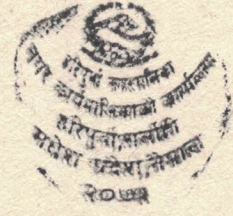 हरिपुर्वा नगरपालिका
नगर कार्यपालिकाको कार्यालय
हरिपुर्वा,सर्लाही
मधेश प्रदेश,नेपाल